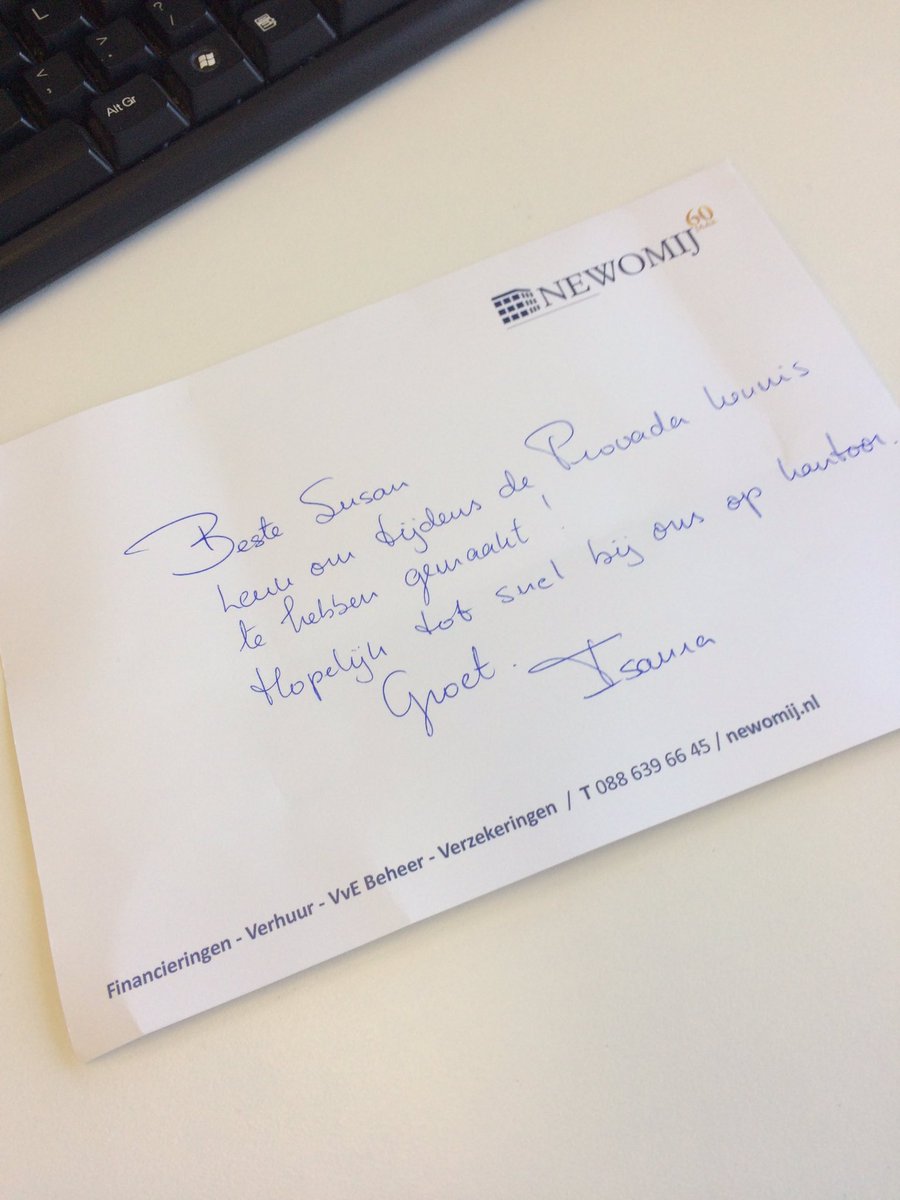 L
? /
> .
< ,
Alt Gr
60
NEWOMIJ
Beste Susan
Leuk om tijdens de Provada kennis
te hebben gemaakt!
Hopelijk tot snel bij ons op kantoor.
Groet. Isaura
Financieringen - Verhuur - VvE Beheer - Verzekeringen / T 088 639 66 45 / newomij.nl